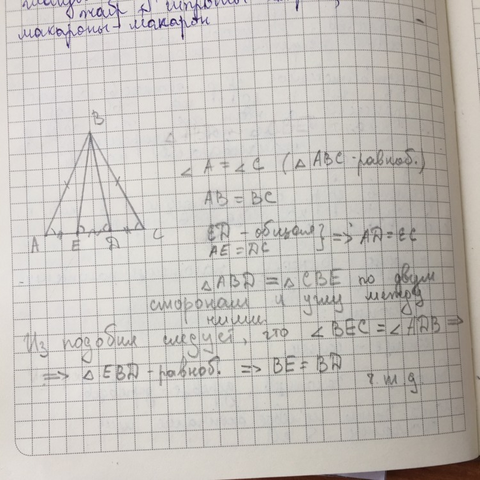 жабр штроты
макароны - макарон
B
A E D C
∠A = ∠C (△ABC - равноб.)
AB = BC
ED - общая } => AD = EC
AE = DC
△ABD = △CBE по двум
сторонам и углу между
ними
Из подобия следует, что ∠BEC = ∠ADB =>
=> △EBD - равноб. => BE = BD
ч.т.д